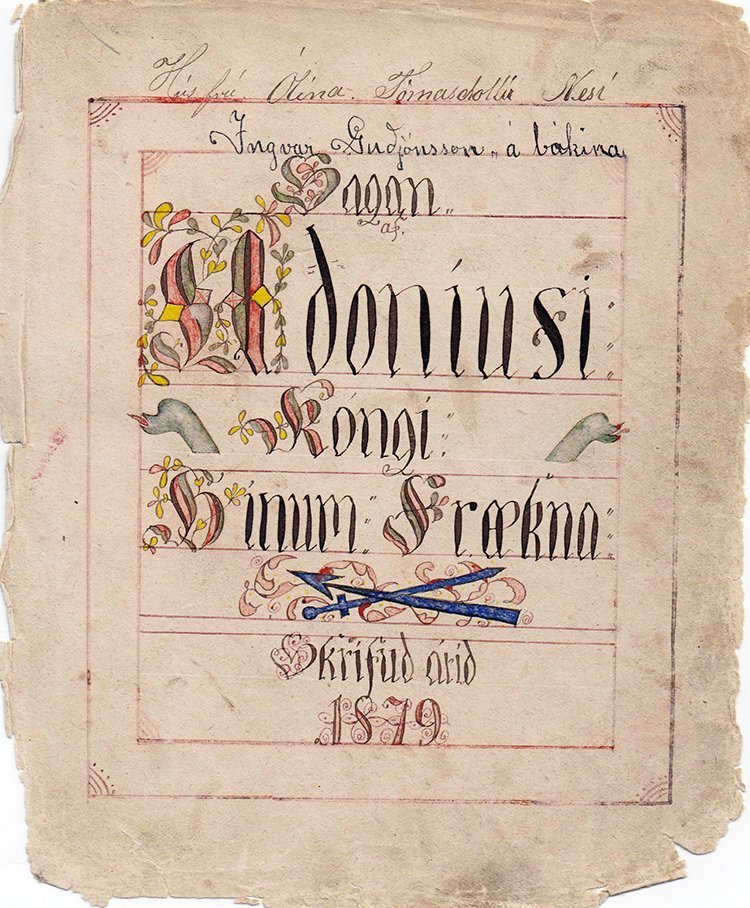 Húsfrú Ólína Tómasdóttir Nesi
Ingvar Guðjónsson „ á bókina
Sagan „
af.
Adoníusi :
Kóngi :
Hinum „ Frækna :
Skrifuð árið
1879